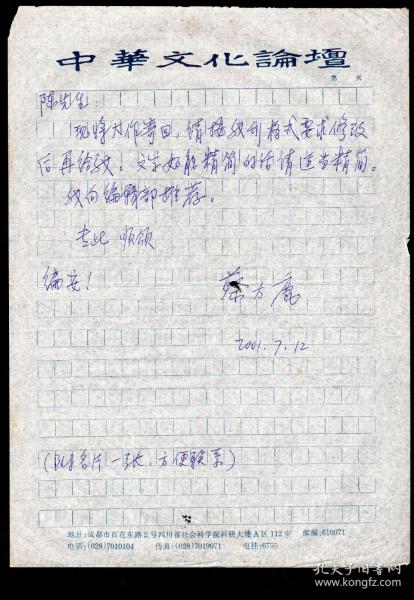 中華文化論壇
第 页
陈先生：
现将大作寄回，请按我刊格式要求修改
后再给我。文字如能精简的话请适当精简。
我向编辑部推荐。
专此 顺颂
编安！
蔡方鹿
2001.7.12
(附名片一张，方便联系)
地址：成都市百花东路2号四川省社会科学院科研大楼A区112室 邮编：610071
电话：(028)7010104 传真：(028)7019971 电挂：6755
孔夫子旧书网
www.kongfz.com